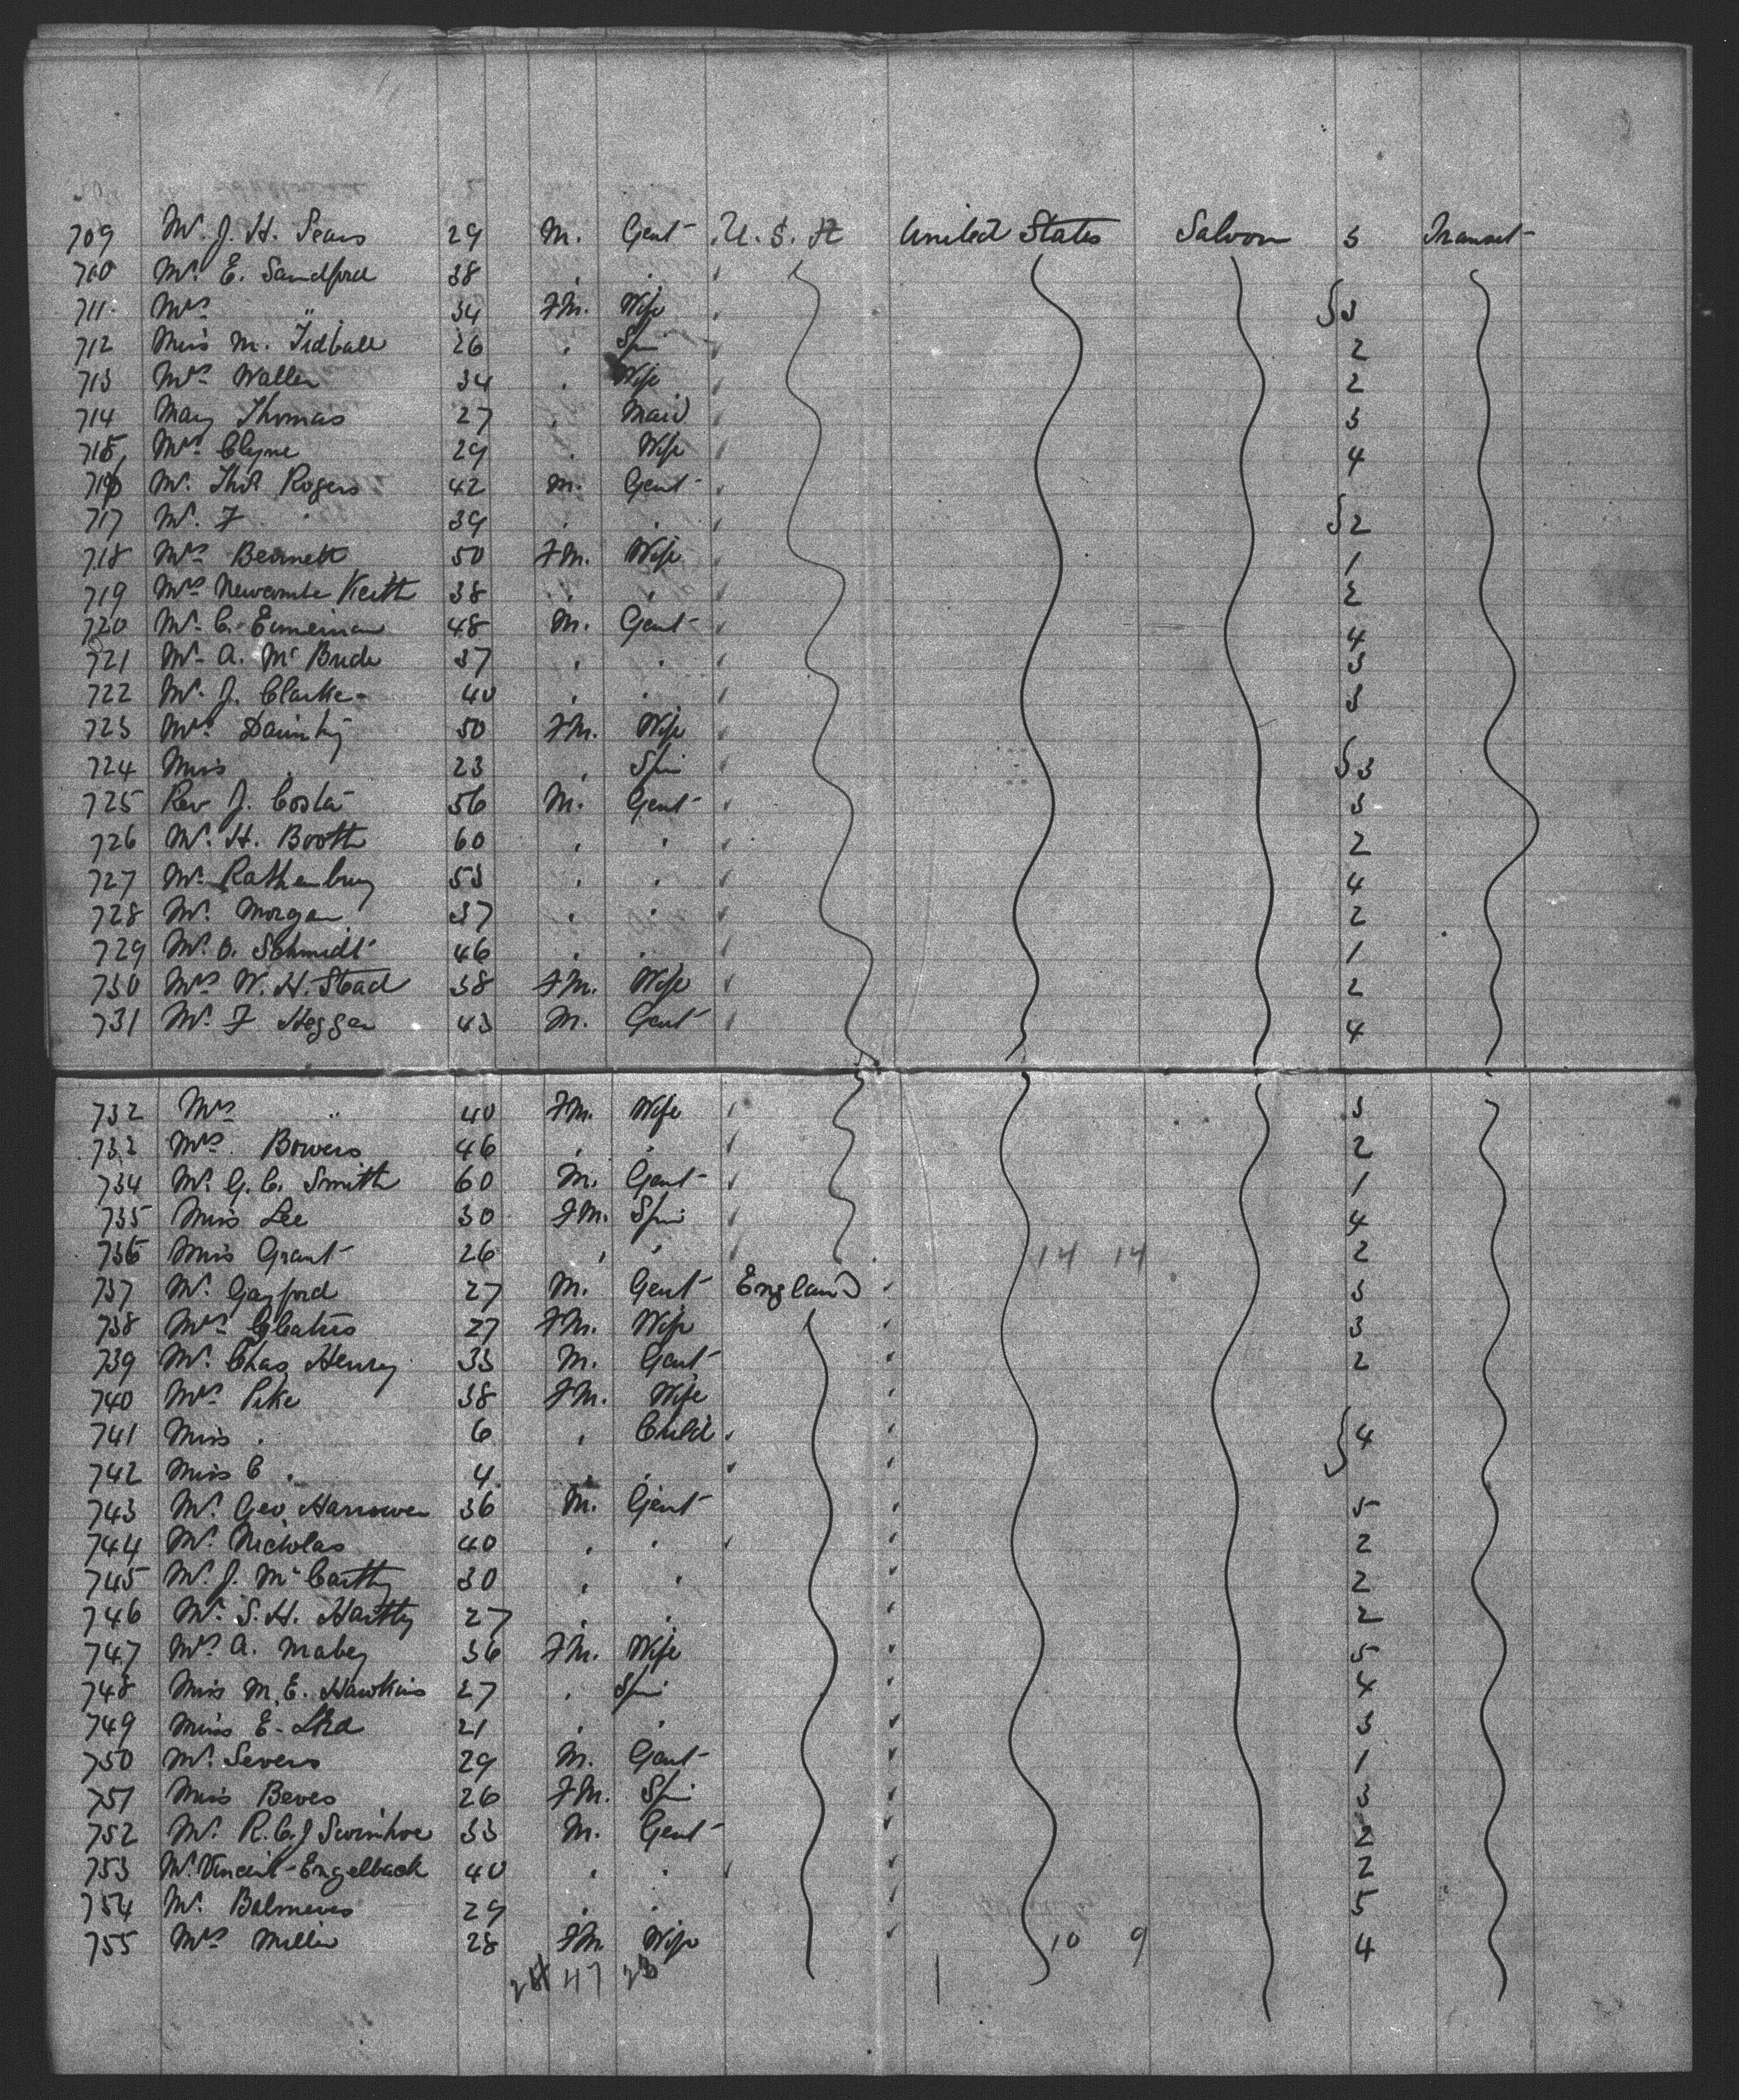 709 Mr. J. H. Sears 29 M. Gent U. S. A United States Saloon 3 Transit
710 Mr. E. Sandford 38 . .
711 Mrs " 34 Fm. Wife 3
712 Miss M. Tidball 26 . Spi 2
713 Mrs Waller 34 . Wife 2
714 Mary Thomas 27 . Maid 3
715 Mrs Clyne 29 . Wife 4
716 Mr. Thos Rogers 42 M. Gent
717 Mr. F. . 39 . . 2
718 Mrs Bennett 50 Fm. Wife 1
719 Mrs Newcombe Keith 38 . . 2
720 Mr. C. 48 M. Gent 4
721 Mr. A. McBride 37 . . 3
722 Mr. J. Clarke 40 . . 3
723 Mrs 50 Fm. Wife
724 Miss . 23 . Spi 3
725 Rev J. Costa 56 M. Gent 3
726 Mr. H. Booth 60 . . 2
727 Mr. Rathenbury 53 . . 4
728 Mr. Morgan 37 . . 2
729 Mr. O. Schmidt 46 . . 1
730 Mrs W. H. Stead 38 Fm. Wife 2
731 Mr. F Heggen 43 M. Gent 4
732 Mrs " 40 Fm. Wife 3
733 Mrs. Bowers 46 . . 2
734 Mr. G. C. Smith 60 M. Gent 1
735 Miss Lee 30 Fm. Spi 4
736 Miss Grant 26 . . 14 14 2
737 Mr. Gayford 27 M. Gent England 3
738 Mrs 27 Fm. Wife 3
739 Mr. Chas Henry 33 M. Gent 2
740 Mrs Pike 38 Fm. Wife
741 Miss . 6 . Child 4
742 Miss C . 4 . .
743 Mr. Geo. Harrower 36 M. Gent 5
744 Mr. Nicholas 40 . . 2
745 Mr. J. McCarthy 30 . . 2
746 Mr. S. H. Hartly 27 . . 2
747 Mrs A. Mabey 36 Fm. Wife 5
748 Miss M. E. Hawkins 27 . Spi 4
749 Miss E. 21 . . 3
750 Mr. Severs 29 M. Gent 1
751 Miss Beves 26 Fm. Spi 3
752 Mr. R. C. J Swinhoe 33 M. Gent 2
753 Mr. Vincent Engelback 40 . . 2
754 Mr. Balmeres 29 . . 5
755 Mrs Miller 28 Fm. Wife 10 9 4
47 23